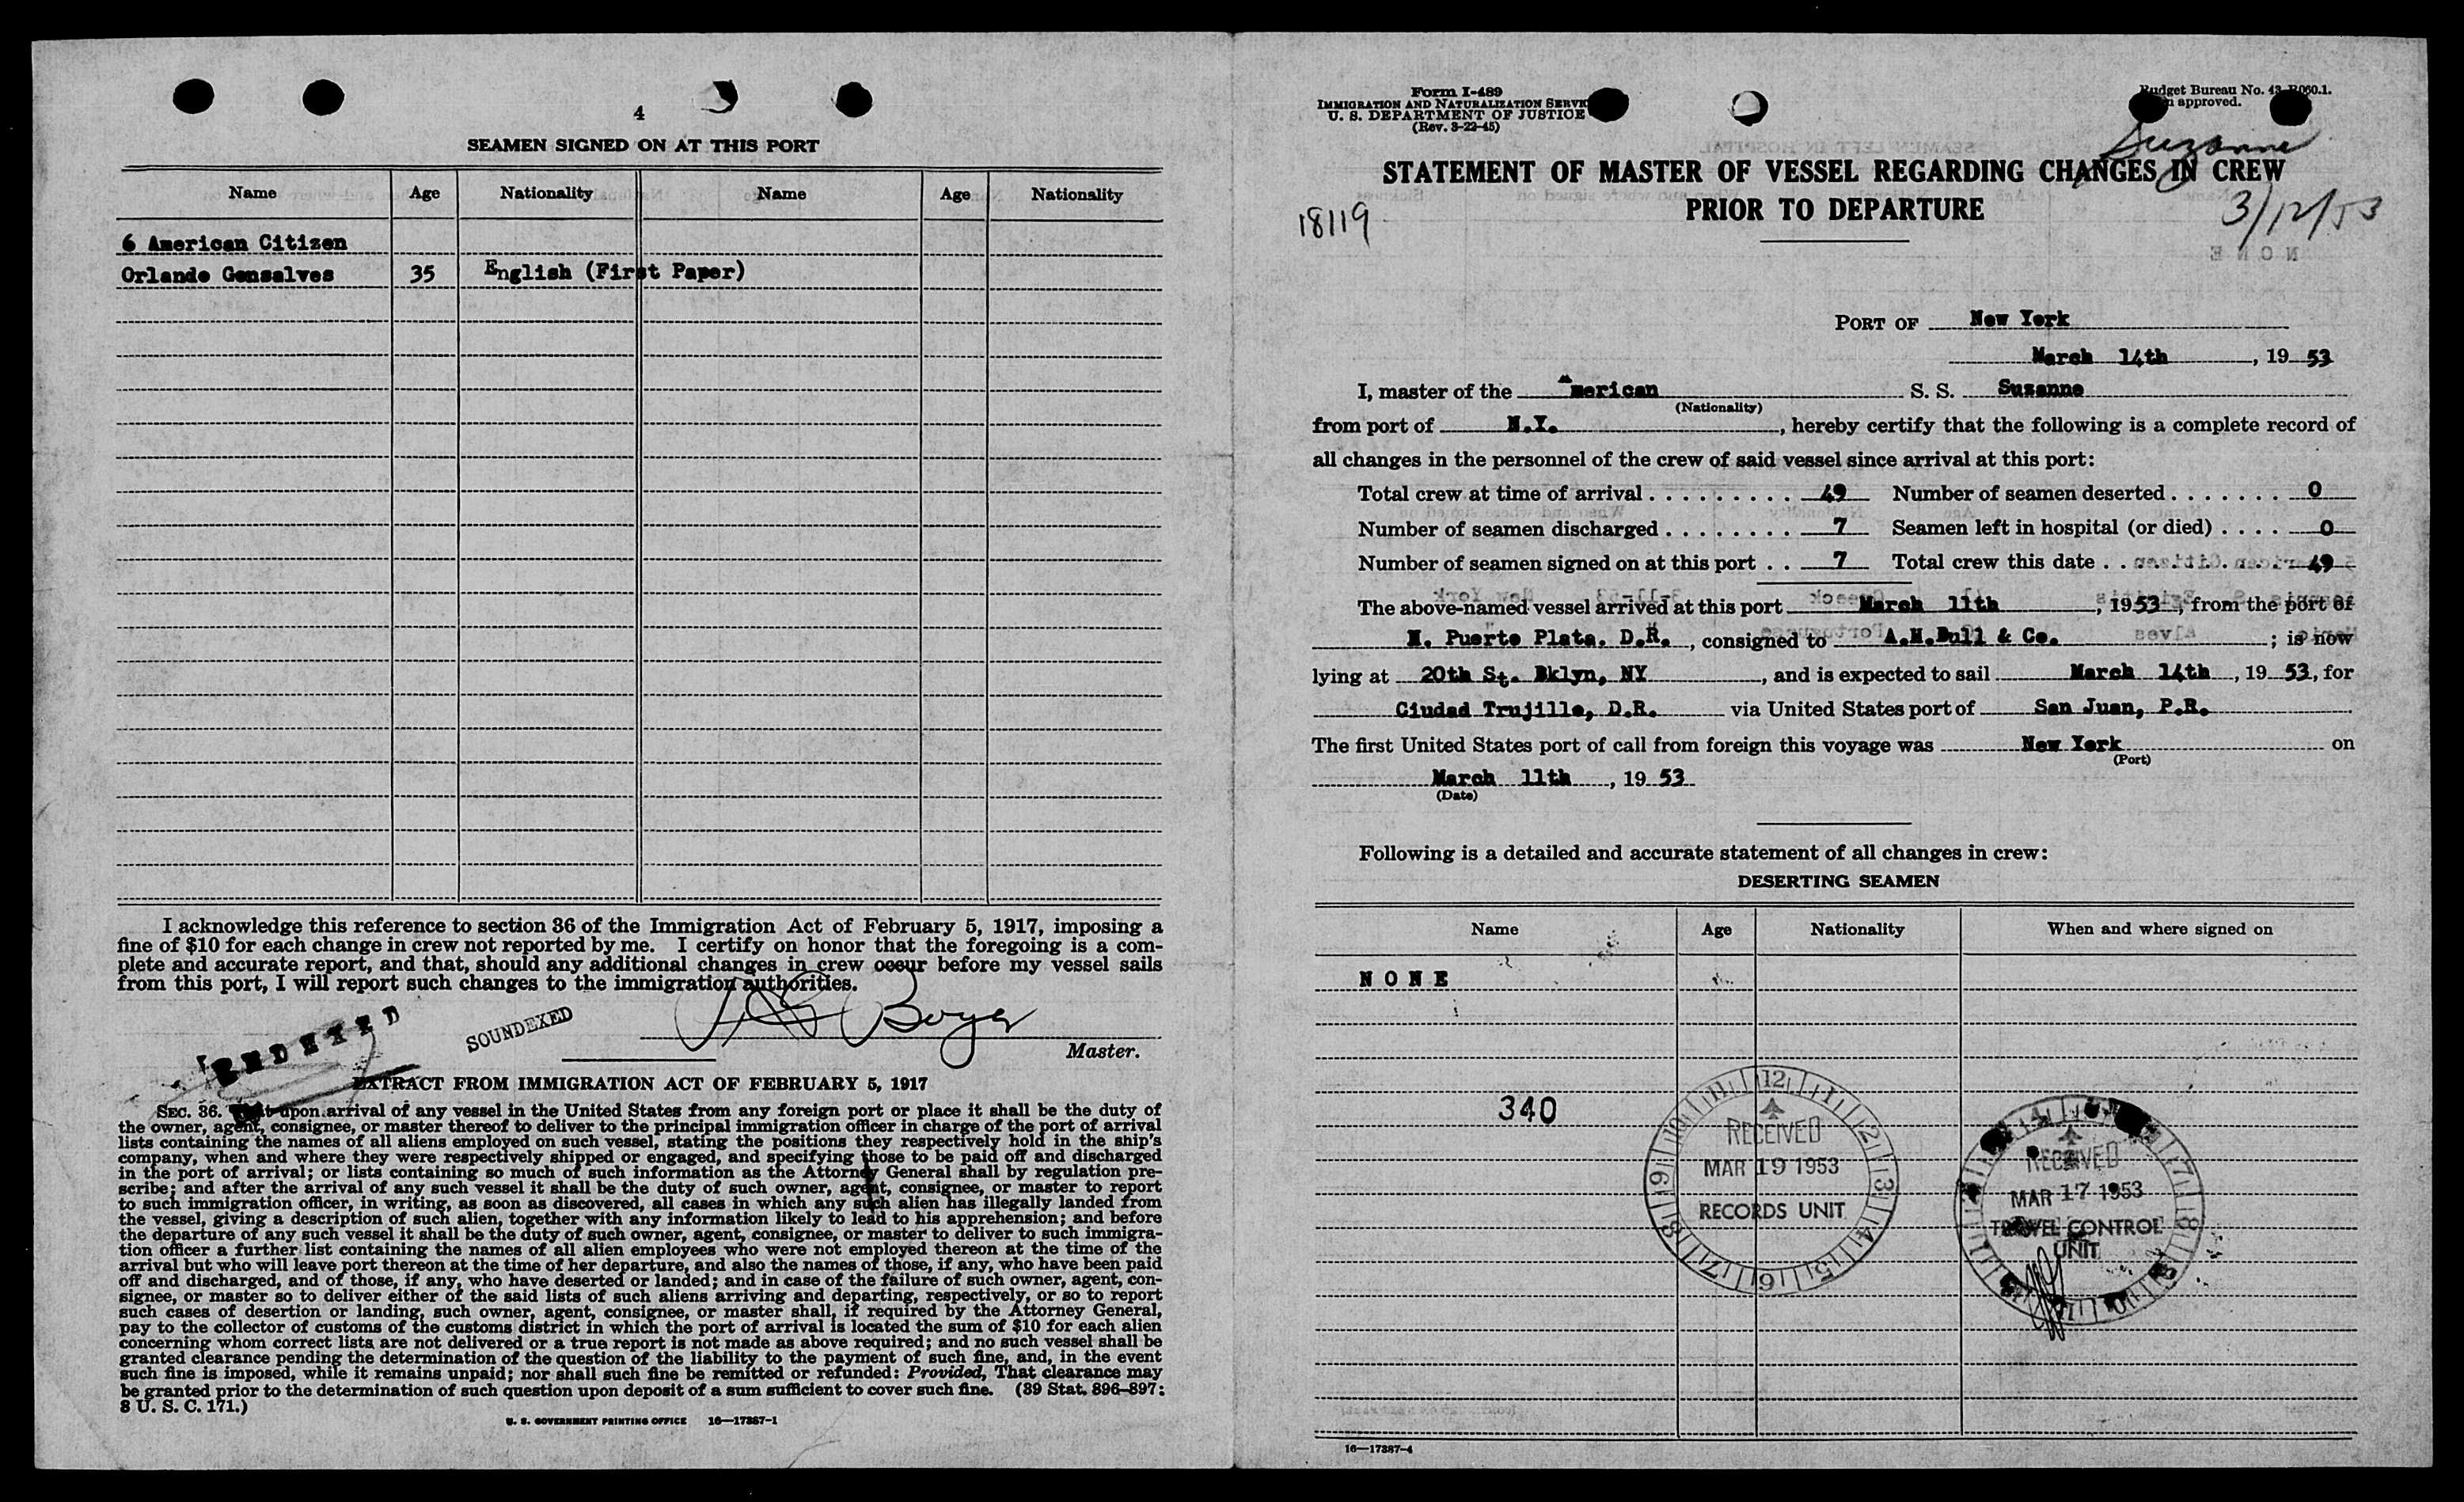 4
SEAMEN SIGNED ON AT THIS PORT
Name Age Nationality Name Age Nationality
6 American Citizen
Orlando Gonsalves 35 English (First Paper)
I acknowledge this reference to section 36 of the Immigration Act of February 5, 1917, imposing a
fine of $10 for each change in crew not reported by me. I certify on honor that the foregoing is a com-
plete and accurate report, and that, should any additional changes in crew occur before my vessel sails
from this port, I will report such changes to the immigration authorities.
SOUNDEXED
Master.
EXTRACT FROM IMMIGRATION ACT OF FEBRUARY 5, 1917
SEC. 36. That upon arrival of any vessel in the United States from any foreign port or place it shall be the duty of
the owner, agent, consignee, or master thereof to deliver to the principal immigration officer in charge of the port of arrival
lists containing the names of all aliens employed on such vessel, stating the positions they respectively hold in the ship's
company, when and where they were respectively shipped or engaged, and specifying those to be paid off and discharged
in the port of arrival; or lists containing so much of such information as the Attorney General shall by regulation pre-
scribe; and after the arrival of any such vessel it shall be the duty of such owner, agent, consignee, or master to report
to such immigration officer, in writing, as soon as discovered, all cases in which any such alien has illegally landed from
the vessel, giving a description of such alien, together with any information likely to lead to his apprehension; and before
the departure of any such vessel it shall be the duty of such owner, agent, consignee, or master to deliver to such immigra-
tion officer a further list containing the names of all alien employees who were not employed thereon at the time of the
arrival but who will leave port thereon at the time of her departure, and also the names of those, if any, who have been paid
off and discharged, and of those, if any, who have deserted or landed; and in case of the failure of such owner, agent, con-
signee, or master so to deliver either of the said lists of such aliens arriving and departing, respectively, or so to report
such cases of desertion or landing, such owner, agent, consignee, or master shall, if required by the Attorney General,
pay to the collector of customs of the customs district in which the port of arrival is located the sum of $10 for each alien
concerning whom correct lists are not delivered or a true report is not made as above required; and no such vessel shall be
granted clearance pending the determination of the question of the liability to the payment of such fine, and, in the event
such fine is imposed, while it remains unpaid; nor shall such fine be remitted or refunded: Provided, That clearance may
be granted prior to the determination of such question upon deposit of a sum sufficient to cover such fine. (39 Stat. 896–897;
8 U. S. C. 171.)
U. S. GOVERNMENT PRINTING OFFICE 16—17387-1
Form I-489
IMMIGRATION AND NATURALIZATION SERVICE
U. S. DEPARTMENT OF JUSTICE
(Rev. 3-22-45)
Budget Bureau No. 43-R060.1.
approved.
Suzanne
STATEMENT OF MASTER OF VESSEL REGARDING CHANGES IN CREW
PRIOR TO DEPARTURE
18119
3/12/53
PORT OF New York
March 14th, 19 53
I, master of the American S. S. Suzanne
(Nationality)
from port of N.Y., hereby certify that the following is a complete record of
all changes in the personnel of the crew of said vessel since arrival at this port:
Total crew at time of arrival . . . . . . . . . 49 Number of seamen deserted . . . . . . . 0
Number of seamen discharged . . . . . . . . 7 Seamen left in hospital (or died) . . . . 0
Number of seamen signed on at this port . . 7 Total crew this date . . 49
The above-named vessel arrived at this port March 11th, 1953, from the port of
N. Puerto Plata. D.R., consigned to A.H.Bull & Co.; is now
lying at 20th St. Bklyn, NY, and is expected to sail March 14th, 19 53, for
Ciudad Trujillo, D.R. via United States port of San Juan, P.R.
The first United States port of call from foreign this voyage was New York on
(Port)
March 11th, 19 53
(Date)
Following is a detailed and accurate statement of all changes in crew:
DESERTING SEAMEN
Name Age Nationality When and where signed on
N O N E
340
RECEIVED
MAR 19 1953
RECORDS UNIT
RECEIVED
MAR 17 1953
TRAVEL CONTROL
UNIT
16—17387-4